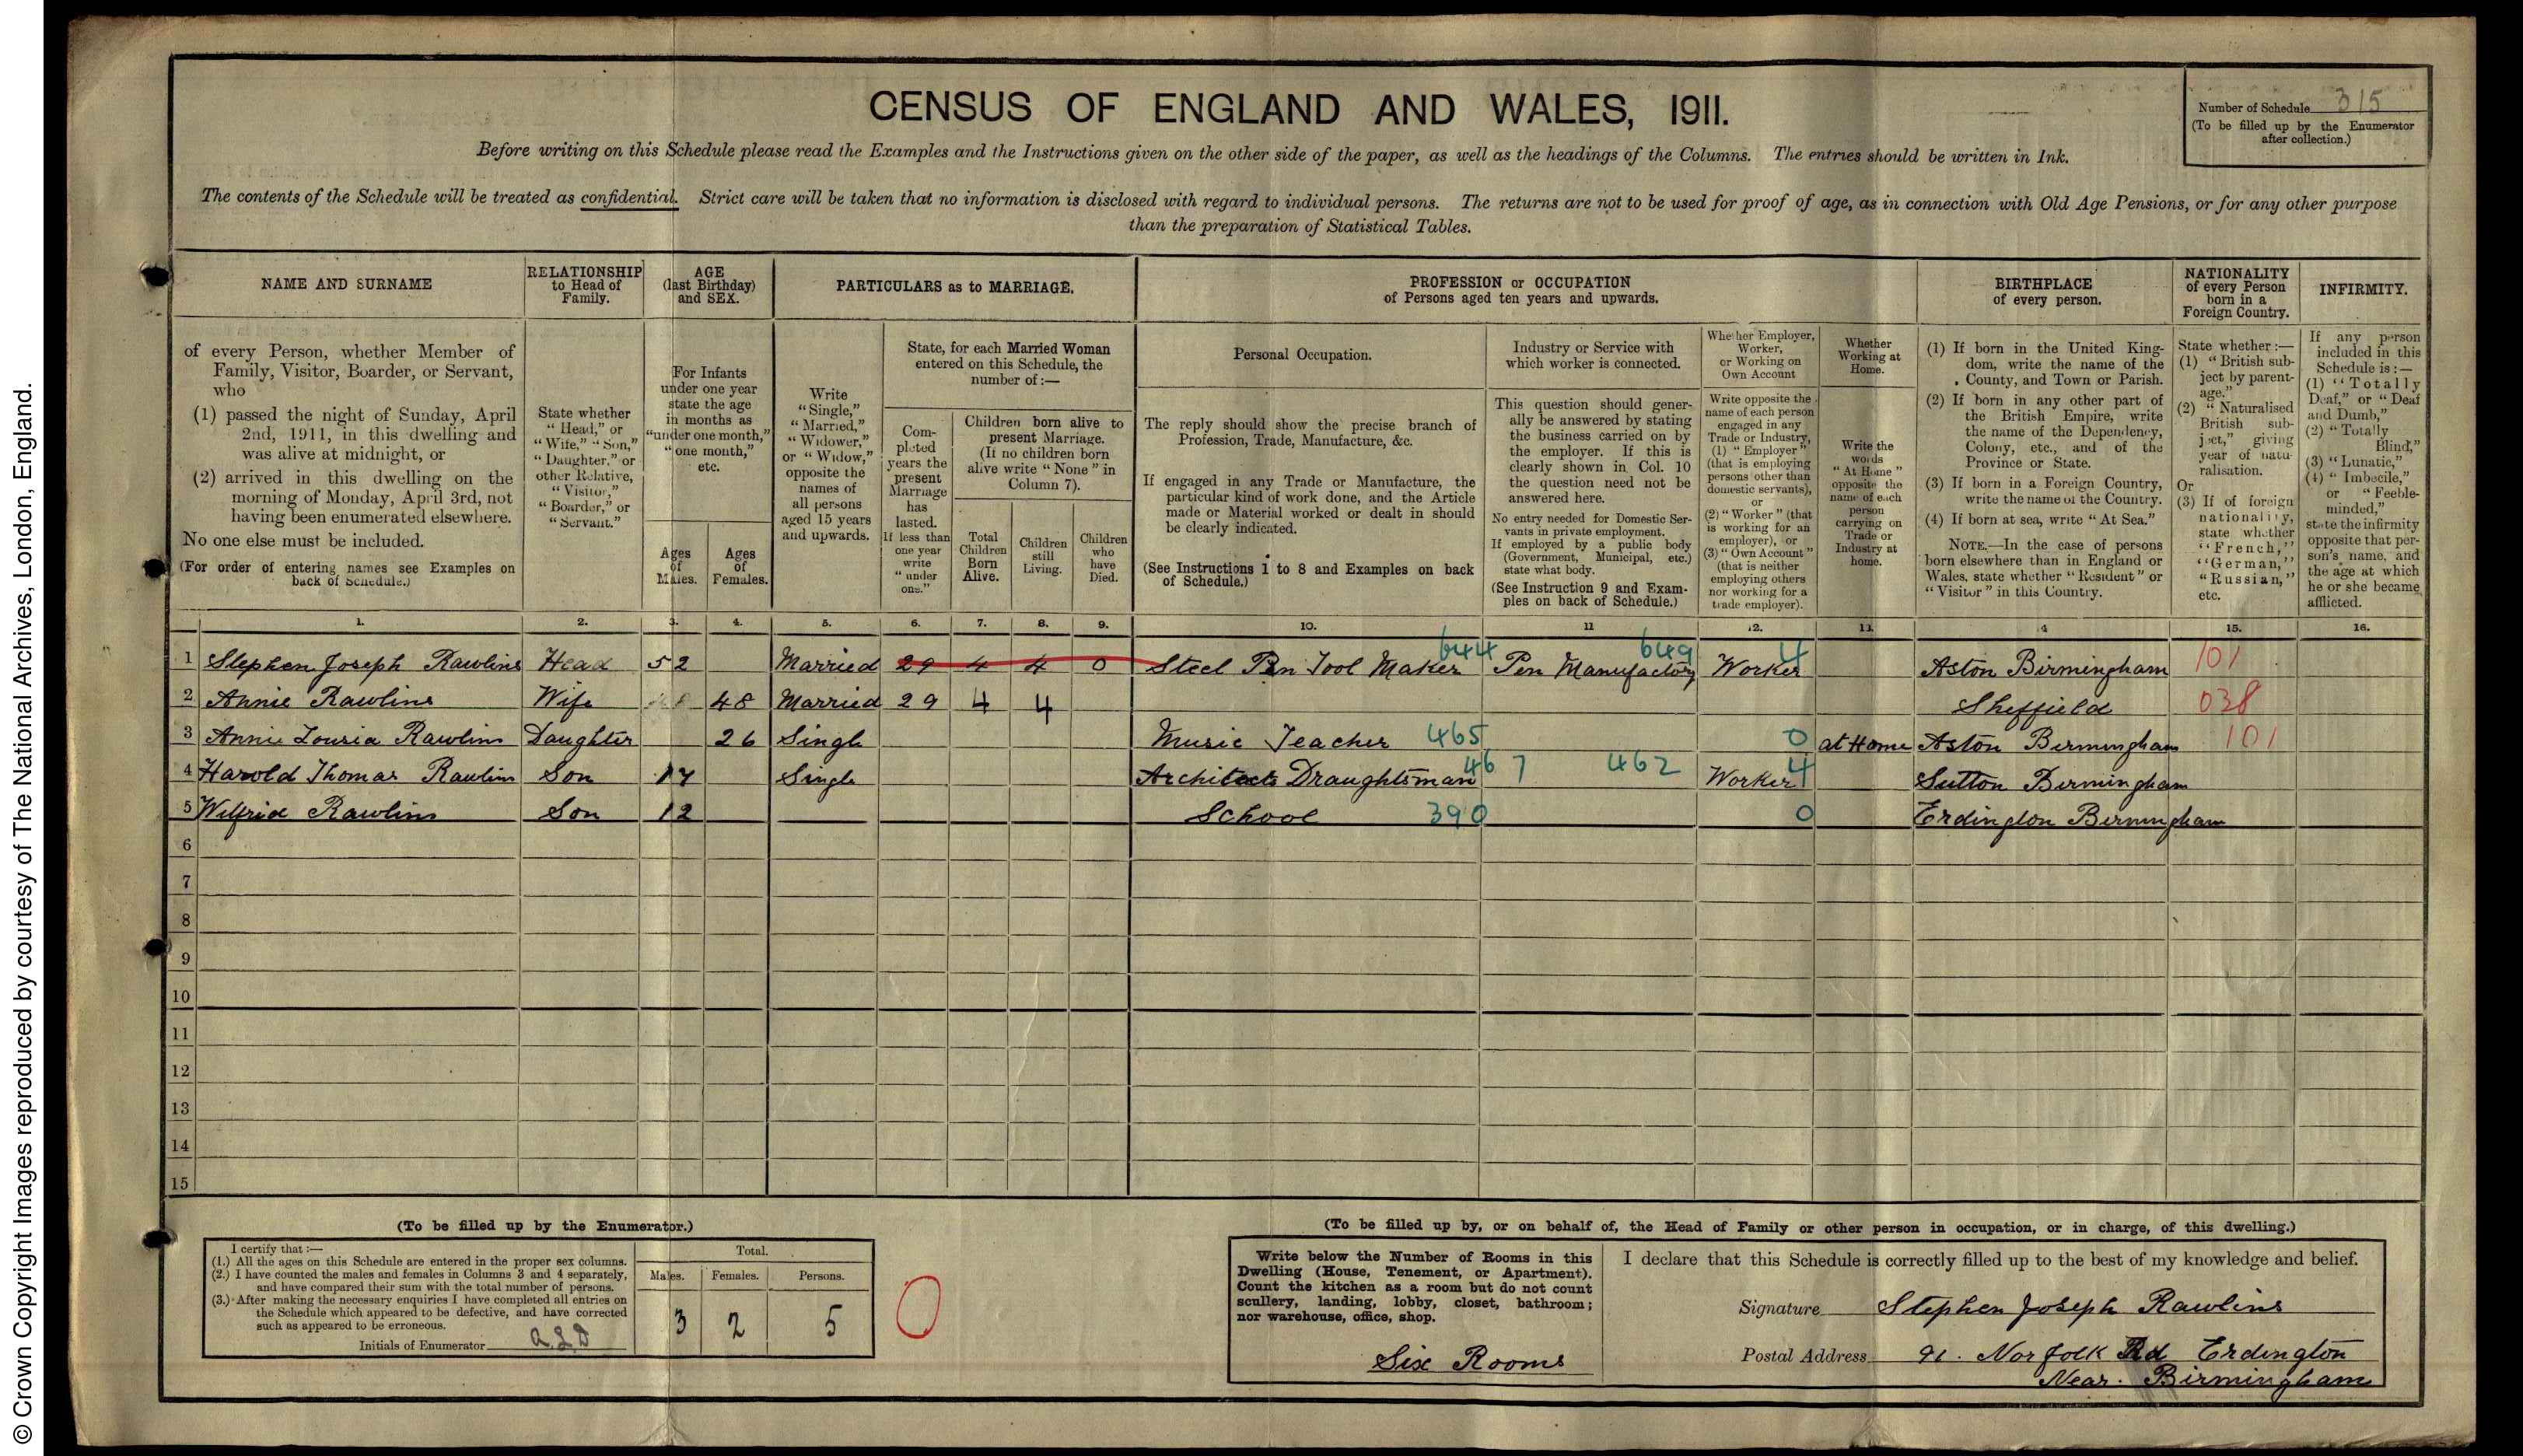 © Crown Copyright Images reproduced by courtesy of The National Archives, London, England.
CENSUS OF ENGLAND AND WALES, 1911.
Number of Schedule 315
(To be filled up by the Enumerator after collection.)
Before writing on this Schedule please read the Examples and the Instructions given on the other side of the paper, as well as the headings of the Columns. The entries should be written in Ink.
The contents of the Schedule will be treated as confidential. Strict care will be taken that no information is disclosed with regard to individual persons. The returns are not to be used for proof of age, as in connection with Old Age Pensions, or for any other purpose
than the preparation of Statistical Tables.
NAME AND SURNAME
of every Person, whether Member of
Family, Visitor, Boarder, or Servant,
who
(1) passed the night of Sunday, April
2nd, 1911, in this dwelling and
was alive at midnight, or
(2) arrived in this dwelling on the
morning of Monday, April 3rd, not
having been enumerated elsewhere.
No one else must be included.
(For order of entering names see Examples on
back of Schedule.)
RELATIONSHIP
to Head of
Family.
State whether
"Head," or
"Wife," "Son,"
"Daughter," or
other Relative,
"Visitor,"
"Boarder," or
"Servant."
AGE
(last Birthday)
and SEX.
For Infants
under one year
state the age
in months as
"under one month,"
"one month,"
etc.
Ages
of
Males.
Ages
of
Females.
PARTICULARS as to MARRIAGE.
Write
"Single,"
"Married,"
"Widower,"
or "Widow,"
opposite the
names of
all persons
aged 15 years
and upwards.
State, for each Married Woman
entered on this Schedule, the
number of:—
Com-
pleted
years the
present
Marriage
has
lasted.
If less than
one year
write
"under
one."
Children born alive to
present Marriage.
(If no children born
alive write "None" in
Column 7).
Total
Children
Born
Alive.
Children
still
Living.
Children
who
have
Died.
PROFESSION or OCCUPATION
of Persons aged ten years and upwards.
Personal Occupation.
The reply should show the precise branch of
Profession, Trade, Manufacture, &c.
If engaged in any Trade or Manufacture, the
particular kind of work done, and the Article
made or Material worked or dealt in should
be clearly indicated.
(See Instructions 1 to 8 and Examples on back
of Schedule.)
Industry or Service with
which worker is connected.
This question should gener-
ally be answered by stating
the business carried on by
the employer. If this is
clearly shown in Col. 10
the question need not be
answered here.
No entry needed for Domestic Ser-
vants in private employment.
If employed by a public body
(Government, Municipal, etc.)
state what body.
(See Instruction 9 and Exam-
ples on back of Schedule.)
Whether Employer,
Worker,
or Working on
Own Account
Write opposite the
name of each person
engaged in any
Trade or Industry,
(1) "Employer"
(that is employing
persons other than
domestic servants),
or
(2) "Worker" (that
is working for an
employer), or
(3) "Own Account"
(that is neither
employing others
nor working for a
trade employer).
Whether
Working at
Home.
Write the
words
"At Home"
opposite the
name of each
person
carrying on
Trade or
Industry at
home.
BIRTHPLACE
of every person.
(1) If born in the United King-
dom, write the name of the
County, and Town or Parish.
(2) If born in any other part of
the British Empire, write
the name of the Dependency,
Colony, etc., and of the
Province or State.
(3) If born in a Foreign Country,
write the name of the Country.
(4) If born at sea, write "At Sea."
NOTE.—In the case of persons
born elsewhere than in England or
Wales, state whether "Resident" or
"Visitor" in this Country.
NATIONALITY
of every Person
born in a
Foreign Country.
State whether:—
(1) "British sub-
ject by parent-
age."
(2) "Naturalised
British sub-
ject," giving
year of natu-
ralisation.
Or
(3) If of foreign
nationality,
state whether
"French,"
"German,"
"Russian,"
etc.
INFIRMITY.
If any person
included in this
Schedule is:—
(1) "Totally
Deaf," or "Deaf
and Dumb,"
(2) "Totally
Blind,"
(3) "Lunatic,"
(4) "Imbecile,"
or "Feeble-
minded,"
state the infirmity
opposite that per-
son's name, and
the age at which
he or she became
afflicted.
1. 2. 3. 4. 5. 6. 7. 8. 9. 10. 11 12. 13. 14 15. 16.
644 649 4
1 Stephen Joseph Rawlins Head 52 Married 29 4 4 0 Steel Pen Tool Maker Pen Manufactory Worker Aston Birmingham 101
2 Annie Rawlins Wife 48 Married 29 4 4 Sheffield 038
3 Annie Lousia Rawlins Daughter 26 Single Music Teacher 465 0 at Home Aston Birmingham 101
4 Harold Thomas Rawlins Son 17 Single Architects Draughtsman 467 462 Worker 4 Sutton Birmingham
5 Wilfrid Rawlins Son 12 School 390 0 Erdington Birmingham
6
7
8
9
10
11
12
13
14
15
(To be filled up by the Enumerator.)
I certify that:—
(1.) All the ages on this Schedule are entered in the proper sex columns.
(2.) I have counted the males and females in Columns 3 and 4 separately,
and have compared their sum with the total number of persons.
(3.) After making the necessary enquiries I have completed all entries on
the Schedule which appeared to be defective, and have corrected
such as appeared to be erroneous.
Initials of Enumerator
Total.
Males. Females. Persons.
3 2 5
0
(To be filled up by, or on behalf of, the Head of Family or other person in occupation, or in charge, of this dwelling.)
Write below the Number of Rooms in this
Dwelling (House, Tenement, or Apartment).
Count the kitchen as a room but do not count
scullery, landing, lobby, closet, bathroom;
nor warehouse, office, shop.
Six Rooms
I declare that this Schedule is correctly filled up to the best of my knowledge and belief.
Signature Stephen Joseph Rawlins
Postal Address 91. Norfolk Rd Erdington
Near. Birmingham